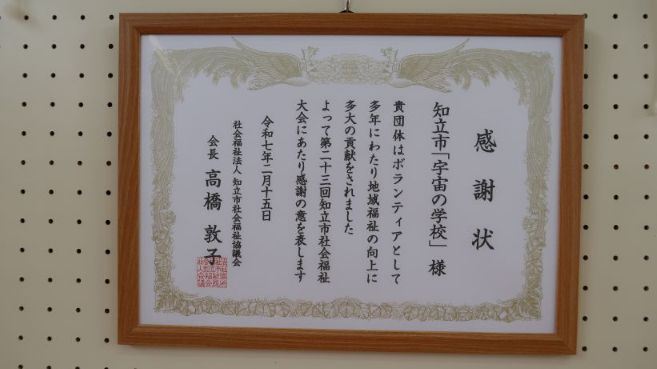 感謝状
知立市「宇宙の学校」様
貴団体はボランティアとして
多年にわたり地域福祉の向上に
多大の貢献をされました
よって第二十三回知立市社会福祉
大会にあたり感謝の意を表します
令和七年二月十五日
社会福祉法人 知立市社会福祉協議会
会長 高橋 敦子